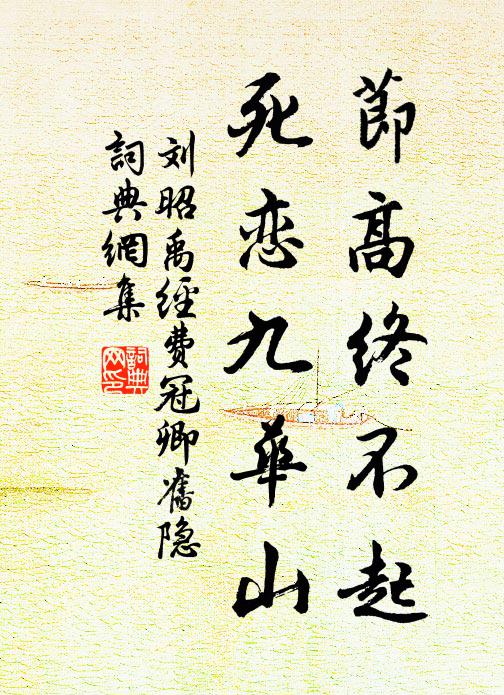 節高終不起
死恋九華山
刘昭禹經費冠卿舊隐
詞典網集
詞典
网印